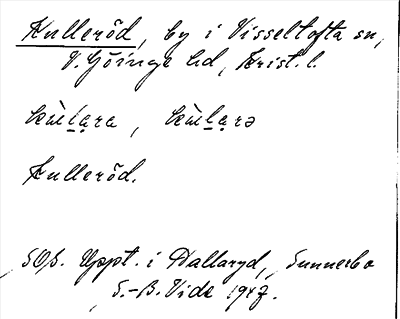 Kulleröd, by i Visseltofta sn,
V. Göinge hd, Krist. l.
Kulleröd.
SOB. Uppt. i Hallaryd, Sunnerbo
S.-B. Vide 1947.